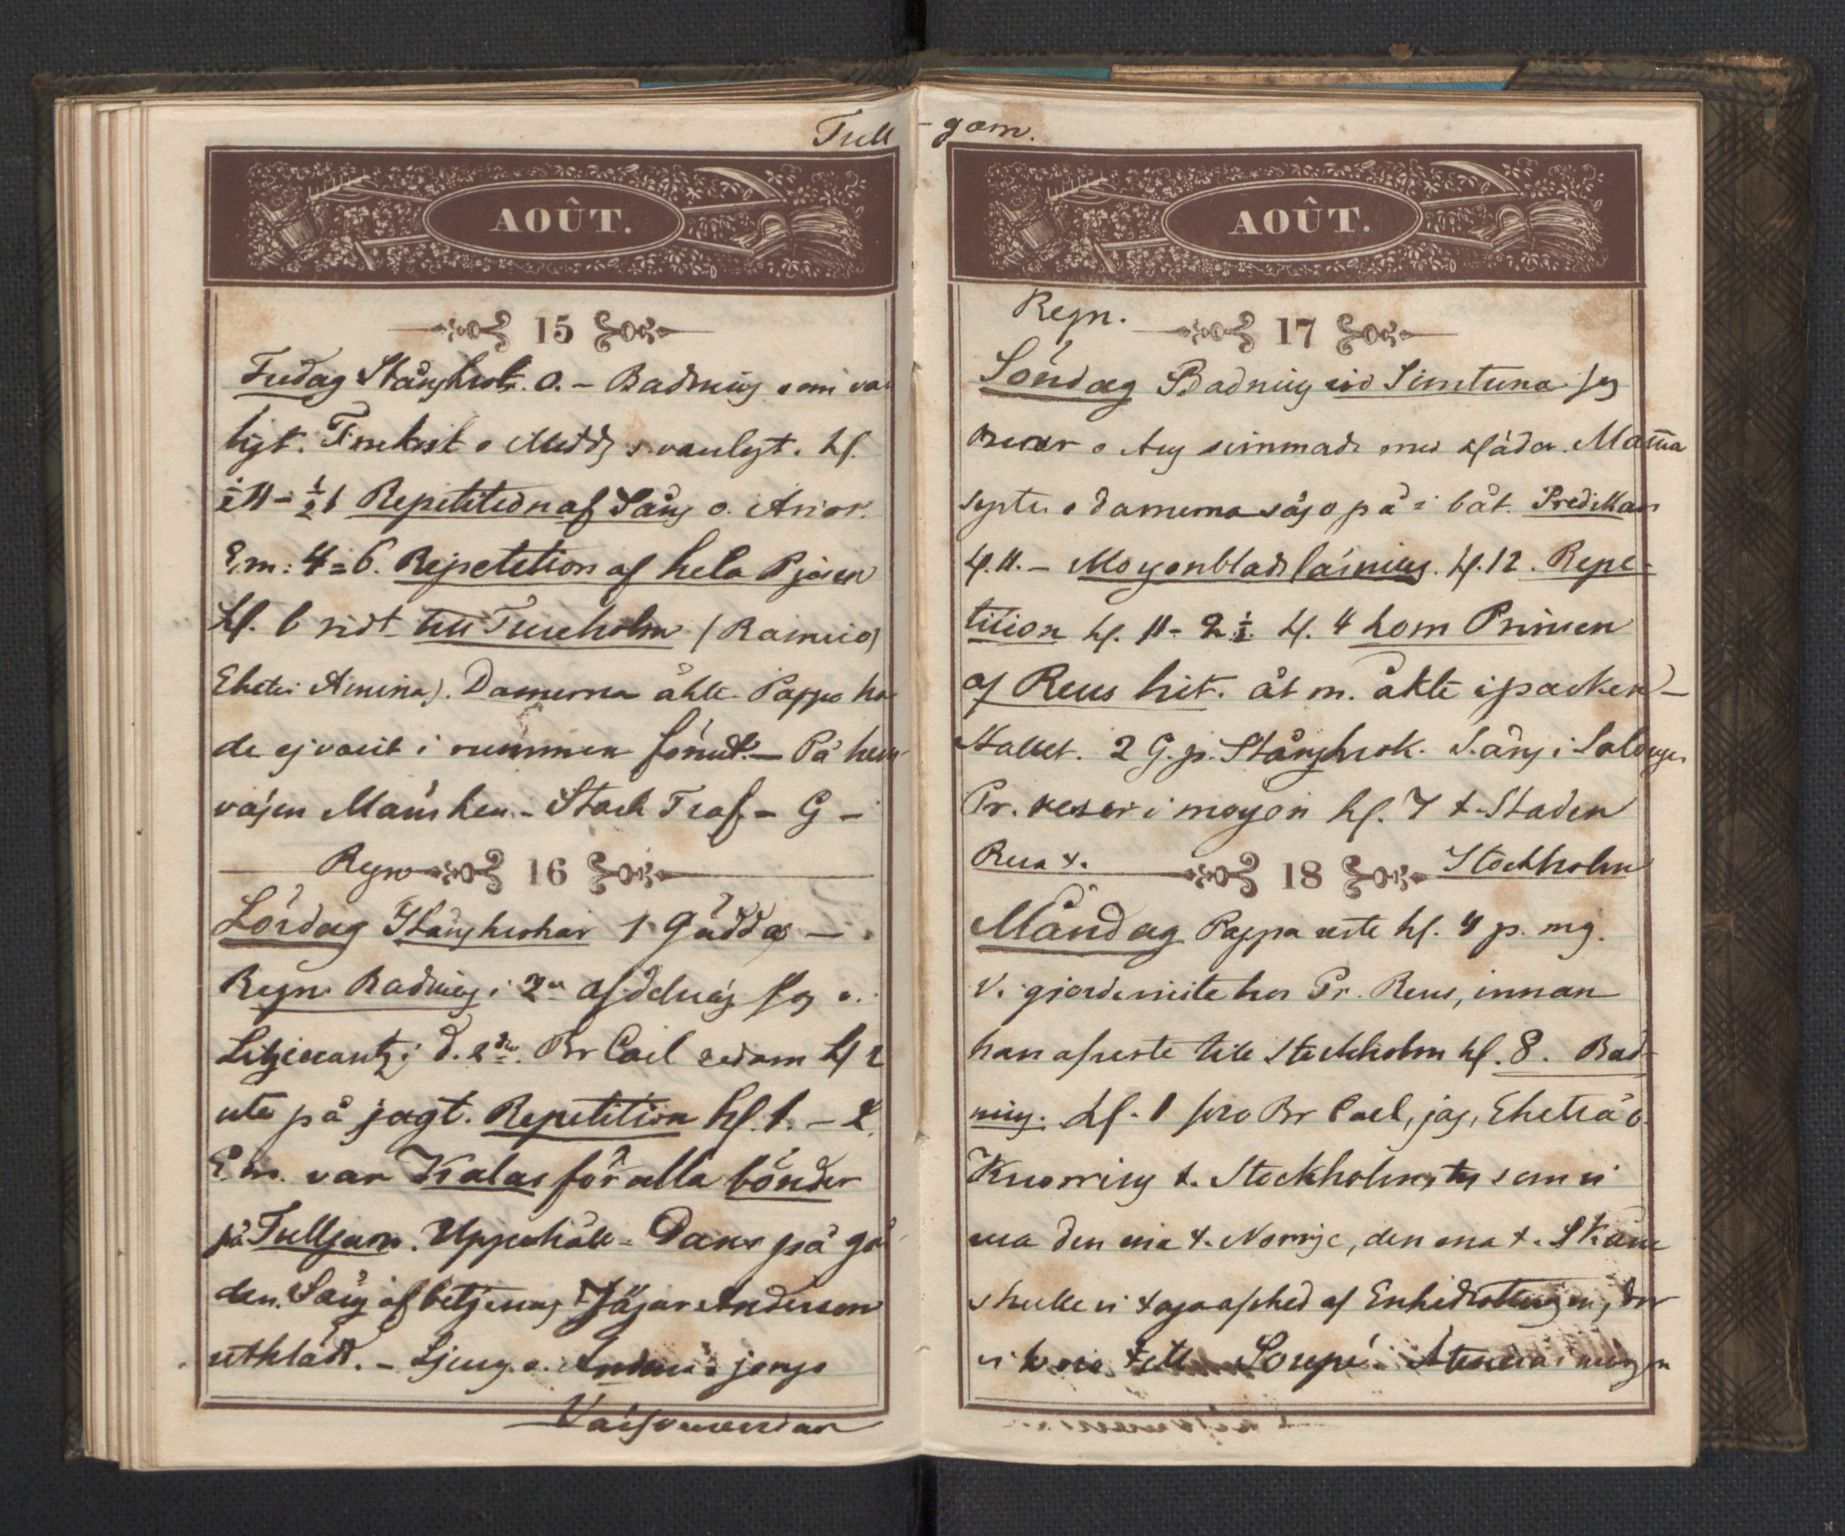 Tull-garn.
AOÛT.
15
Fredag Stångkrok. o. – Badning som van
ligt. Frukost o Midd. s. vanligt. kl.
½ 11 – ½ 1 Repetition af Sång o. Arior.
Em: 4 = 6. Repetition af hela Pjesen
kl. 6 ridt till Tureholm (Ramiro)
Amina). Damerna åkte. Pappa ha
de ej varit i rummen förut. – På hem
vägen Månsken. – Stark Traf – G –
Regn
16
Lördag Stångkrokar 1 Gädda –
Regn Badning i 2 afdelning Jag o.
i d. Br Carl sedan kl
ute på jagt. Repetition kl. 1. – 2.
Em. var Kalas för alla bönder
på Tullgarn. Uppehåll – Dans på går
den. Sång af betjening Jägar Anderson
utklädd. – Ljung. o.
AOÛT.
Regn.
17
Söndag Badning vid Simtuna Jag
o Aug simmade med kläder. Mamma
o damerna sågo på i båt. Predikan
kl. 11. – Morgonbladsläsning. kl. 12. Repe-
tition kl. 11 – 2 ½ kl. 4 kom Prinsen
af Reus hit. åt m. åkte i parken –
Stallet. 2 G. p. Stångkrok. Sång i Salongen
Pr. reser i morgon kl. 7 t. Staden
Resa t.
18
Stockholm
Måndag Pappa reste kl. 4 p. mg.
Vi gjorde visite hos Pr. Reus, innan
han afreste till Stockholm kl. 8. Bad-
ning. kl. 1 foro Br Carl, jag, o
Knorring t. Stockholm, ty som vi
den ena t. Norrige, den ena t. Skåne
skulle vi taga afsked af Enkedrottningen, der
vi voro till Soupé. i morgon